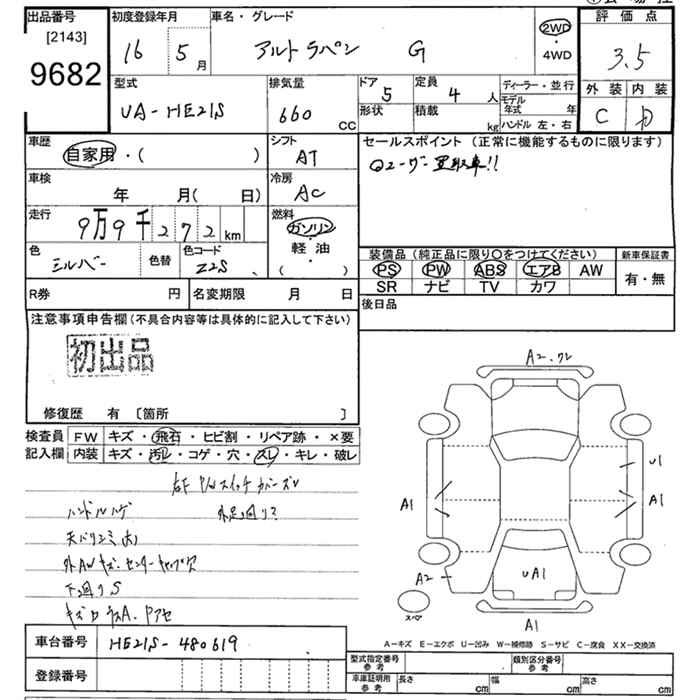 出品番号
[2143]
9682
初度登録年月
16 5月
車名・グレード
アルトラパン G
2WD
・
4WD
評価点
3.5
外装 内装
C D
型式
UA-HE21S
排気量
660 CC
ドア
5
形状
定員
4 人
積載
kg
ディーラー・並行
モデル年式 年
ハンドル 左・右
車歴
自家用・( )
シフト
AT
車検
年 月( 日)
冷房
AC
走行
9万9千272km
燃料
ガソリン
・
軽油
・
( )
色
シルバー
色替
色コード
Z2S
R券 円
名変期限 月 日
セールスポイント (正常に機能するものに限ります)
ユーザー買取車!!
装備品 (純正品に限り○をつけてください)
PS PW ABS エアB AW
SR ナビ TV カワ
新車保証書
有・無
後日品
注意事項申告欄 (不具合内容等は具体的に記入して下さい)
初出品
修復歴 有 〔箇所 〕
検査員記入欄
FW キズ・飛石・ヒビ割・リペア跡・×要
内装 キズ・汚レ・コゲ・穴・スレ・キレ・破レ
ハンドルハゲ
下回りS
車台番号 HE21S-480619
登録番号
A2
A1
U1
A1
A2
UA1
A1
スペア
A-キズ E-エクボ U-凹み W-補修跡 S-サビ C-腐食 XX-交換済
型式指定番号
参考
類別区分番号
参考
車庫証明用
参考
長さ cm
幅 cm
高さ cm